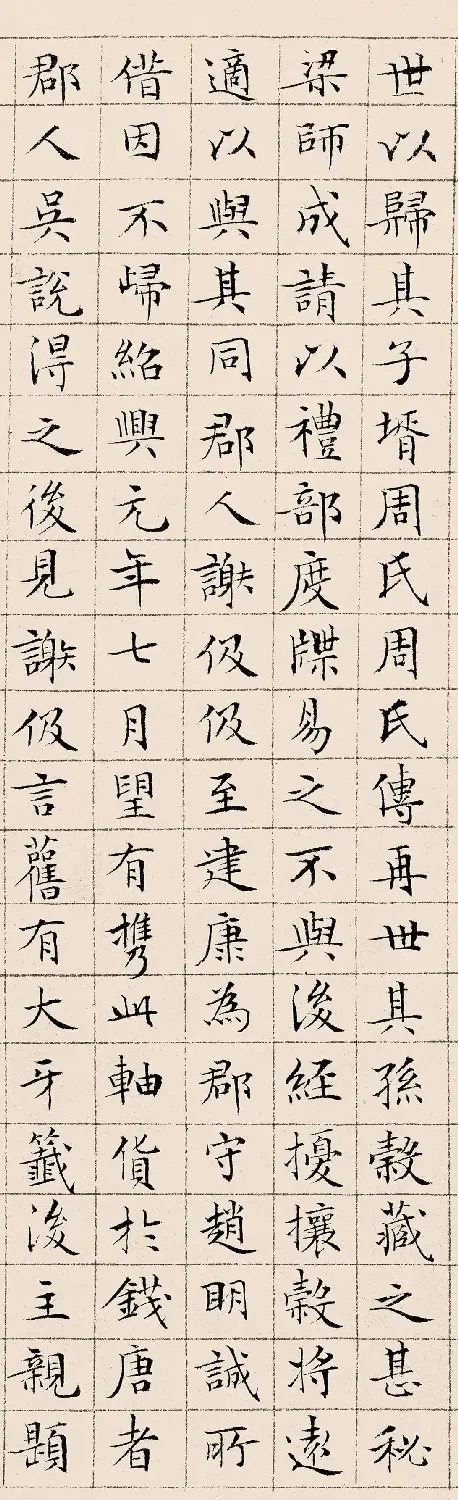 世以歸其子壻周氏周氏傳再世其孫穀藏之甚秘
梁師成請以禮部度牒易之不與後經擾攘穀將遠
適以與其同郡人謝伋伋至建康為郡守趙明誠所
借因不歸紹興元年七月望有携此軸貨於錢唐者
郡人吳說得之後見謝伋言舊有大牙籤後主親題